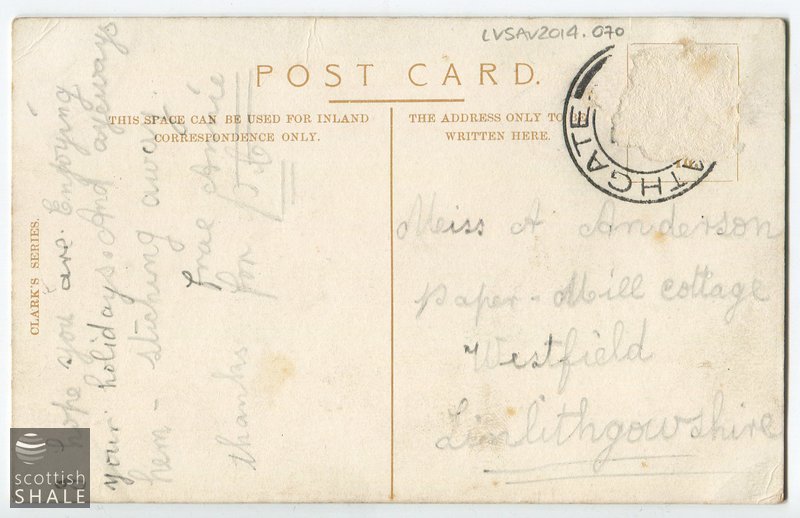 LVSAV2014.070
POST CARD.
THIS SPACE CAN BE USED FOR INLAND
CORRESPONDENCE ONLY.
THE ADDRESS ONLY TO BE
WRITTEN HERE.
CLARK'S SERIES.
ATHGATE
hope you are. Enjoying
your holidays. And
hem - stiching away
frae Annie
thanks for p.c.
Meiss A Anderson
paper-Mill cottage
Westfield
Linlithgowshire
scottish
SHALE